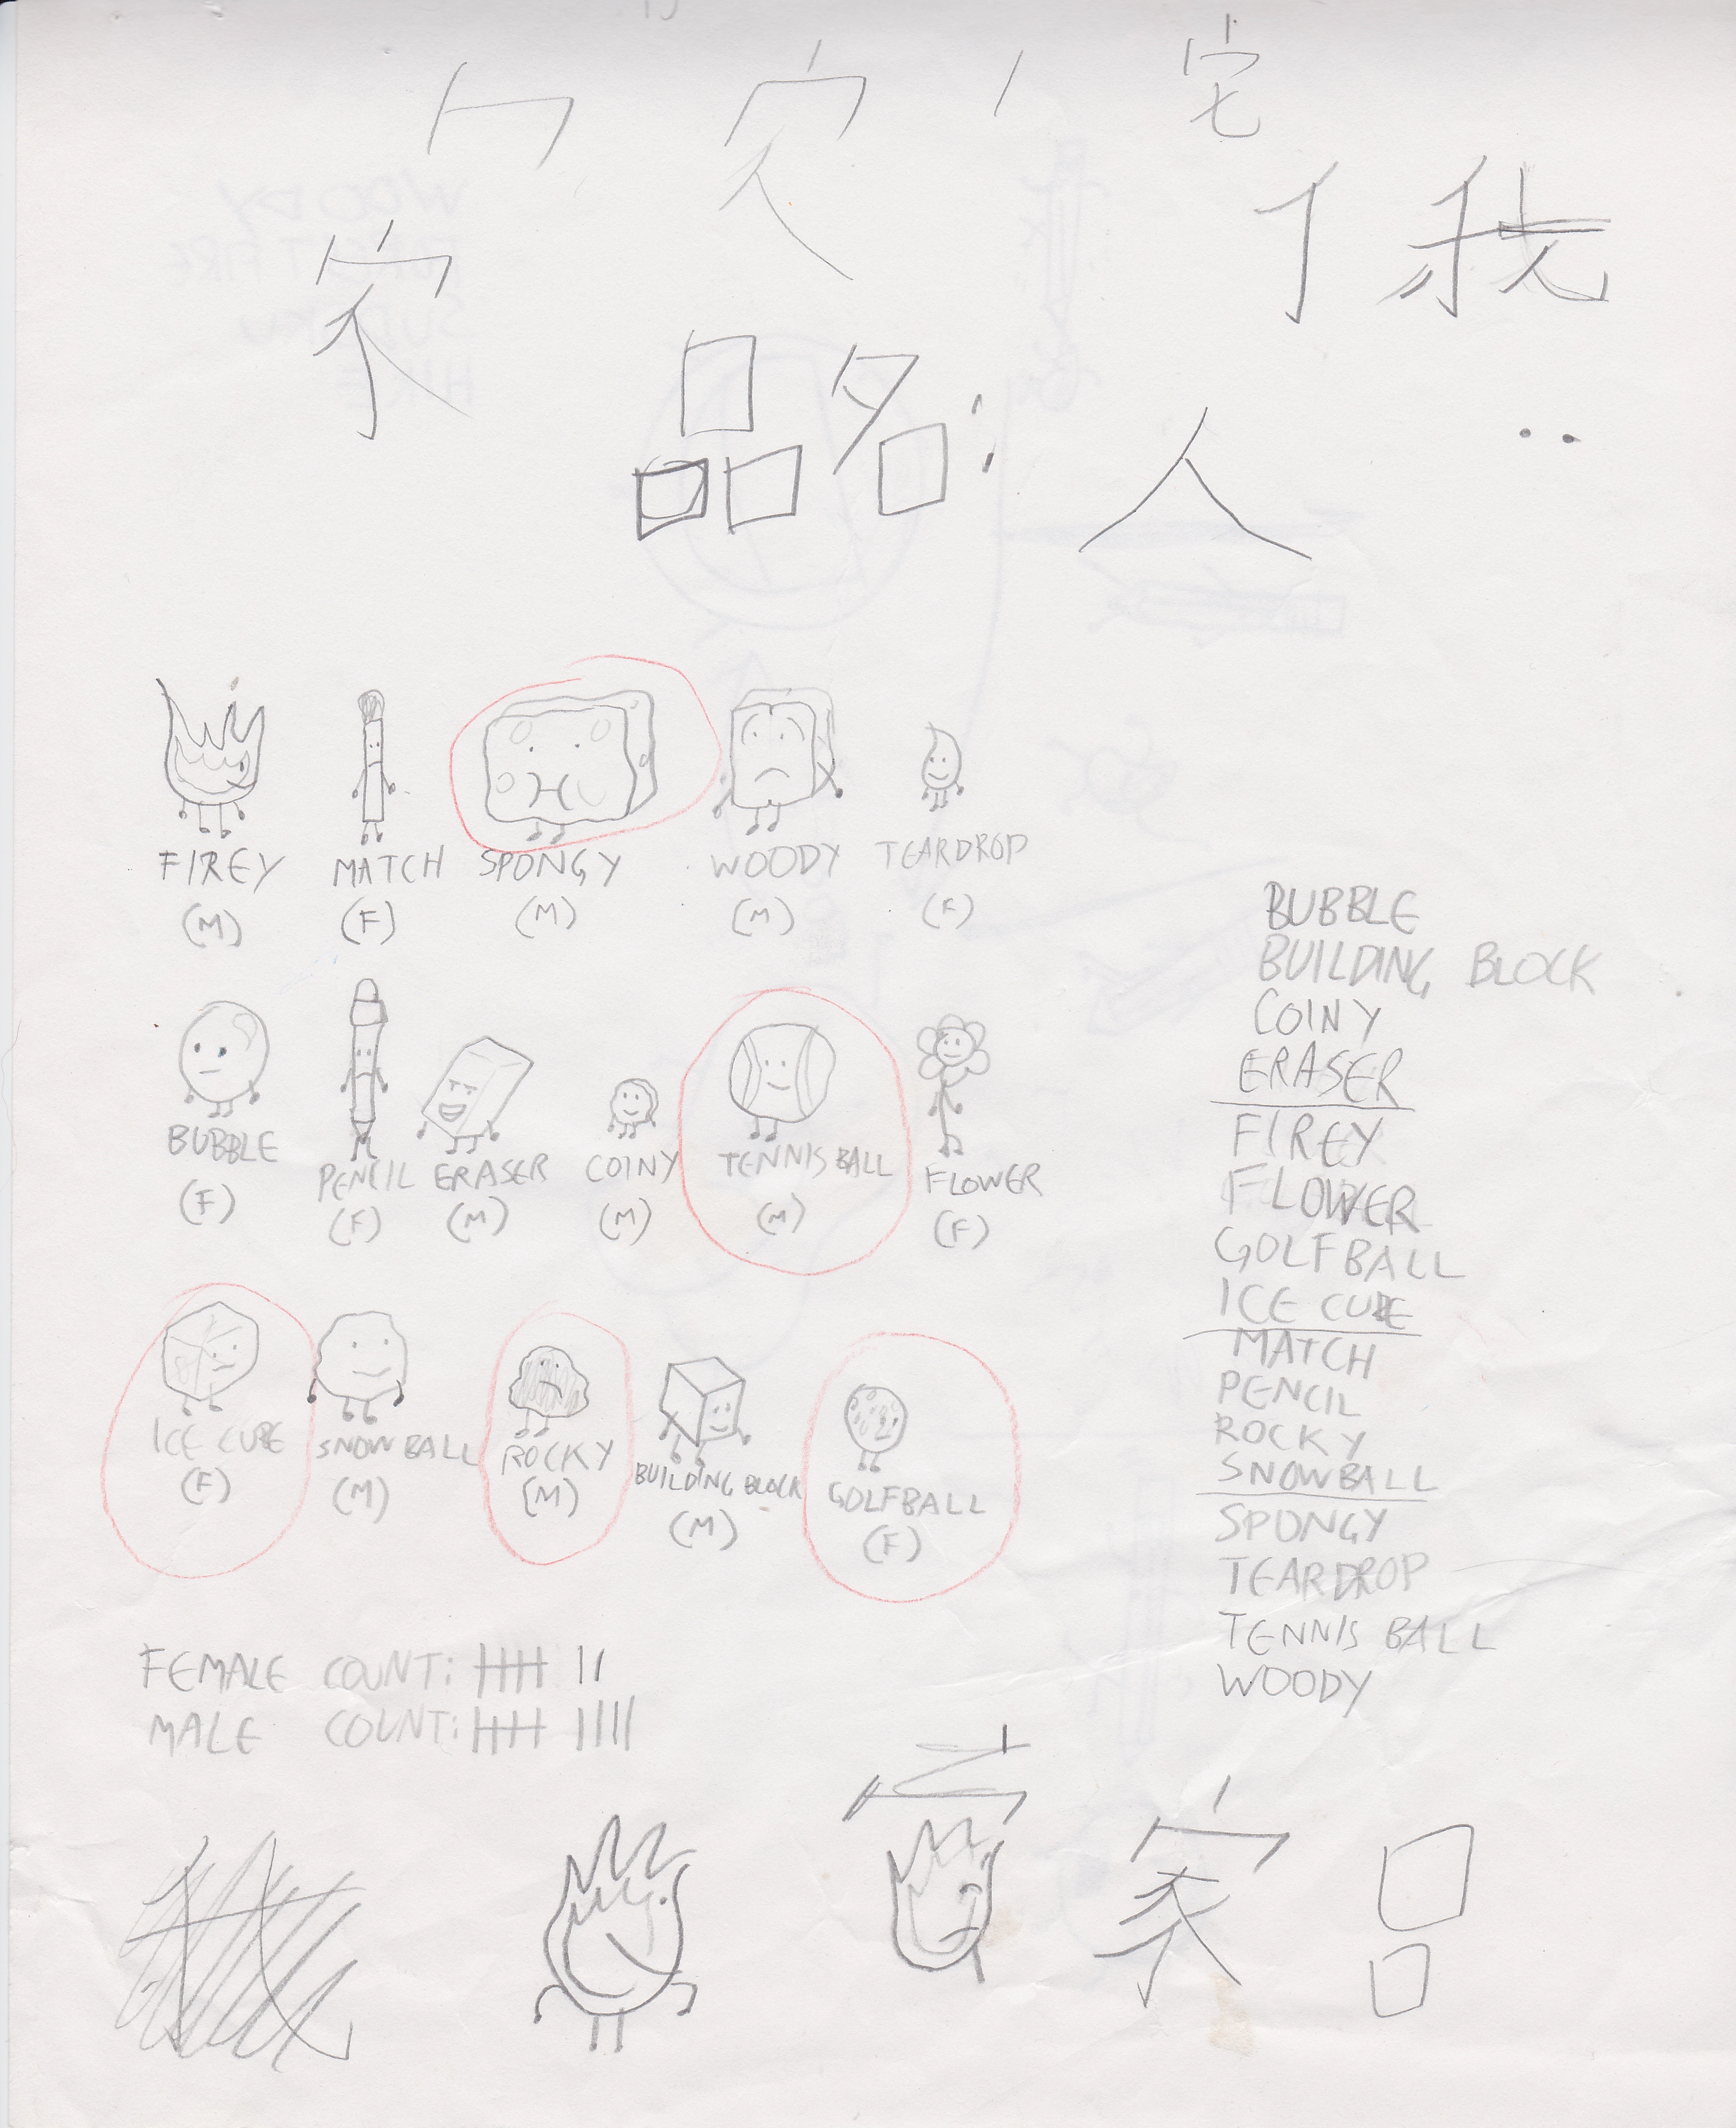 宅
我
家
品名:
人
FIREY MATCH SPONGY WOODY TEARDROP
(M) (F) (M) (M) (F)
BUBBLE PENCIL ERASER COINY TENNIS BALL FLOWER
(F) (F) (M) (M) (M) (F)
ICE CUBE SNOWBALL ROCKY BUILDING BLOCK GOLFBALL
(F) (M) (M) (M) (F)
BUBBLE
BUILDING BLOCK
COINY
ERASER
FIREY
FLOWER
GOLFBALL
ICE CUBE
MATCH
PENCIL
ROCKY
SNOWBALL
SPONGY
TEARDROP
TENNIS BALL
WOODY
FEMALE COUNT: 卌 II
MALE COUNT: 卌 IIII
家